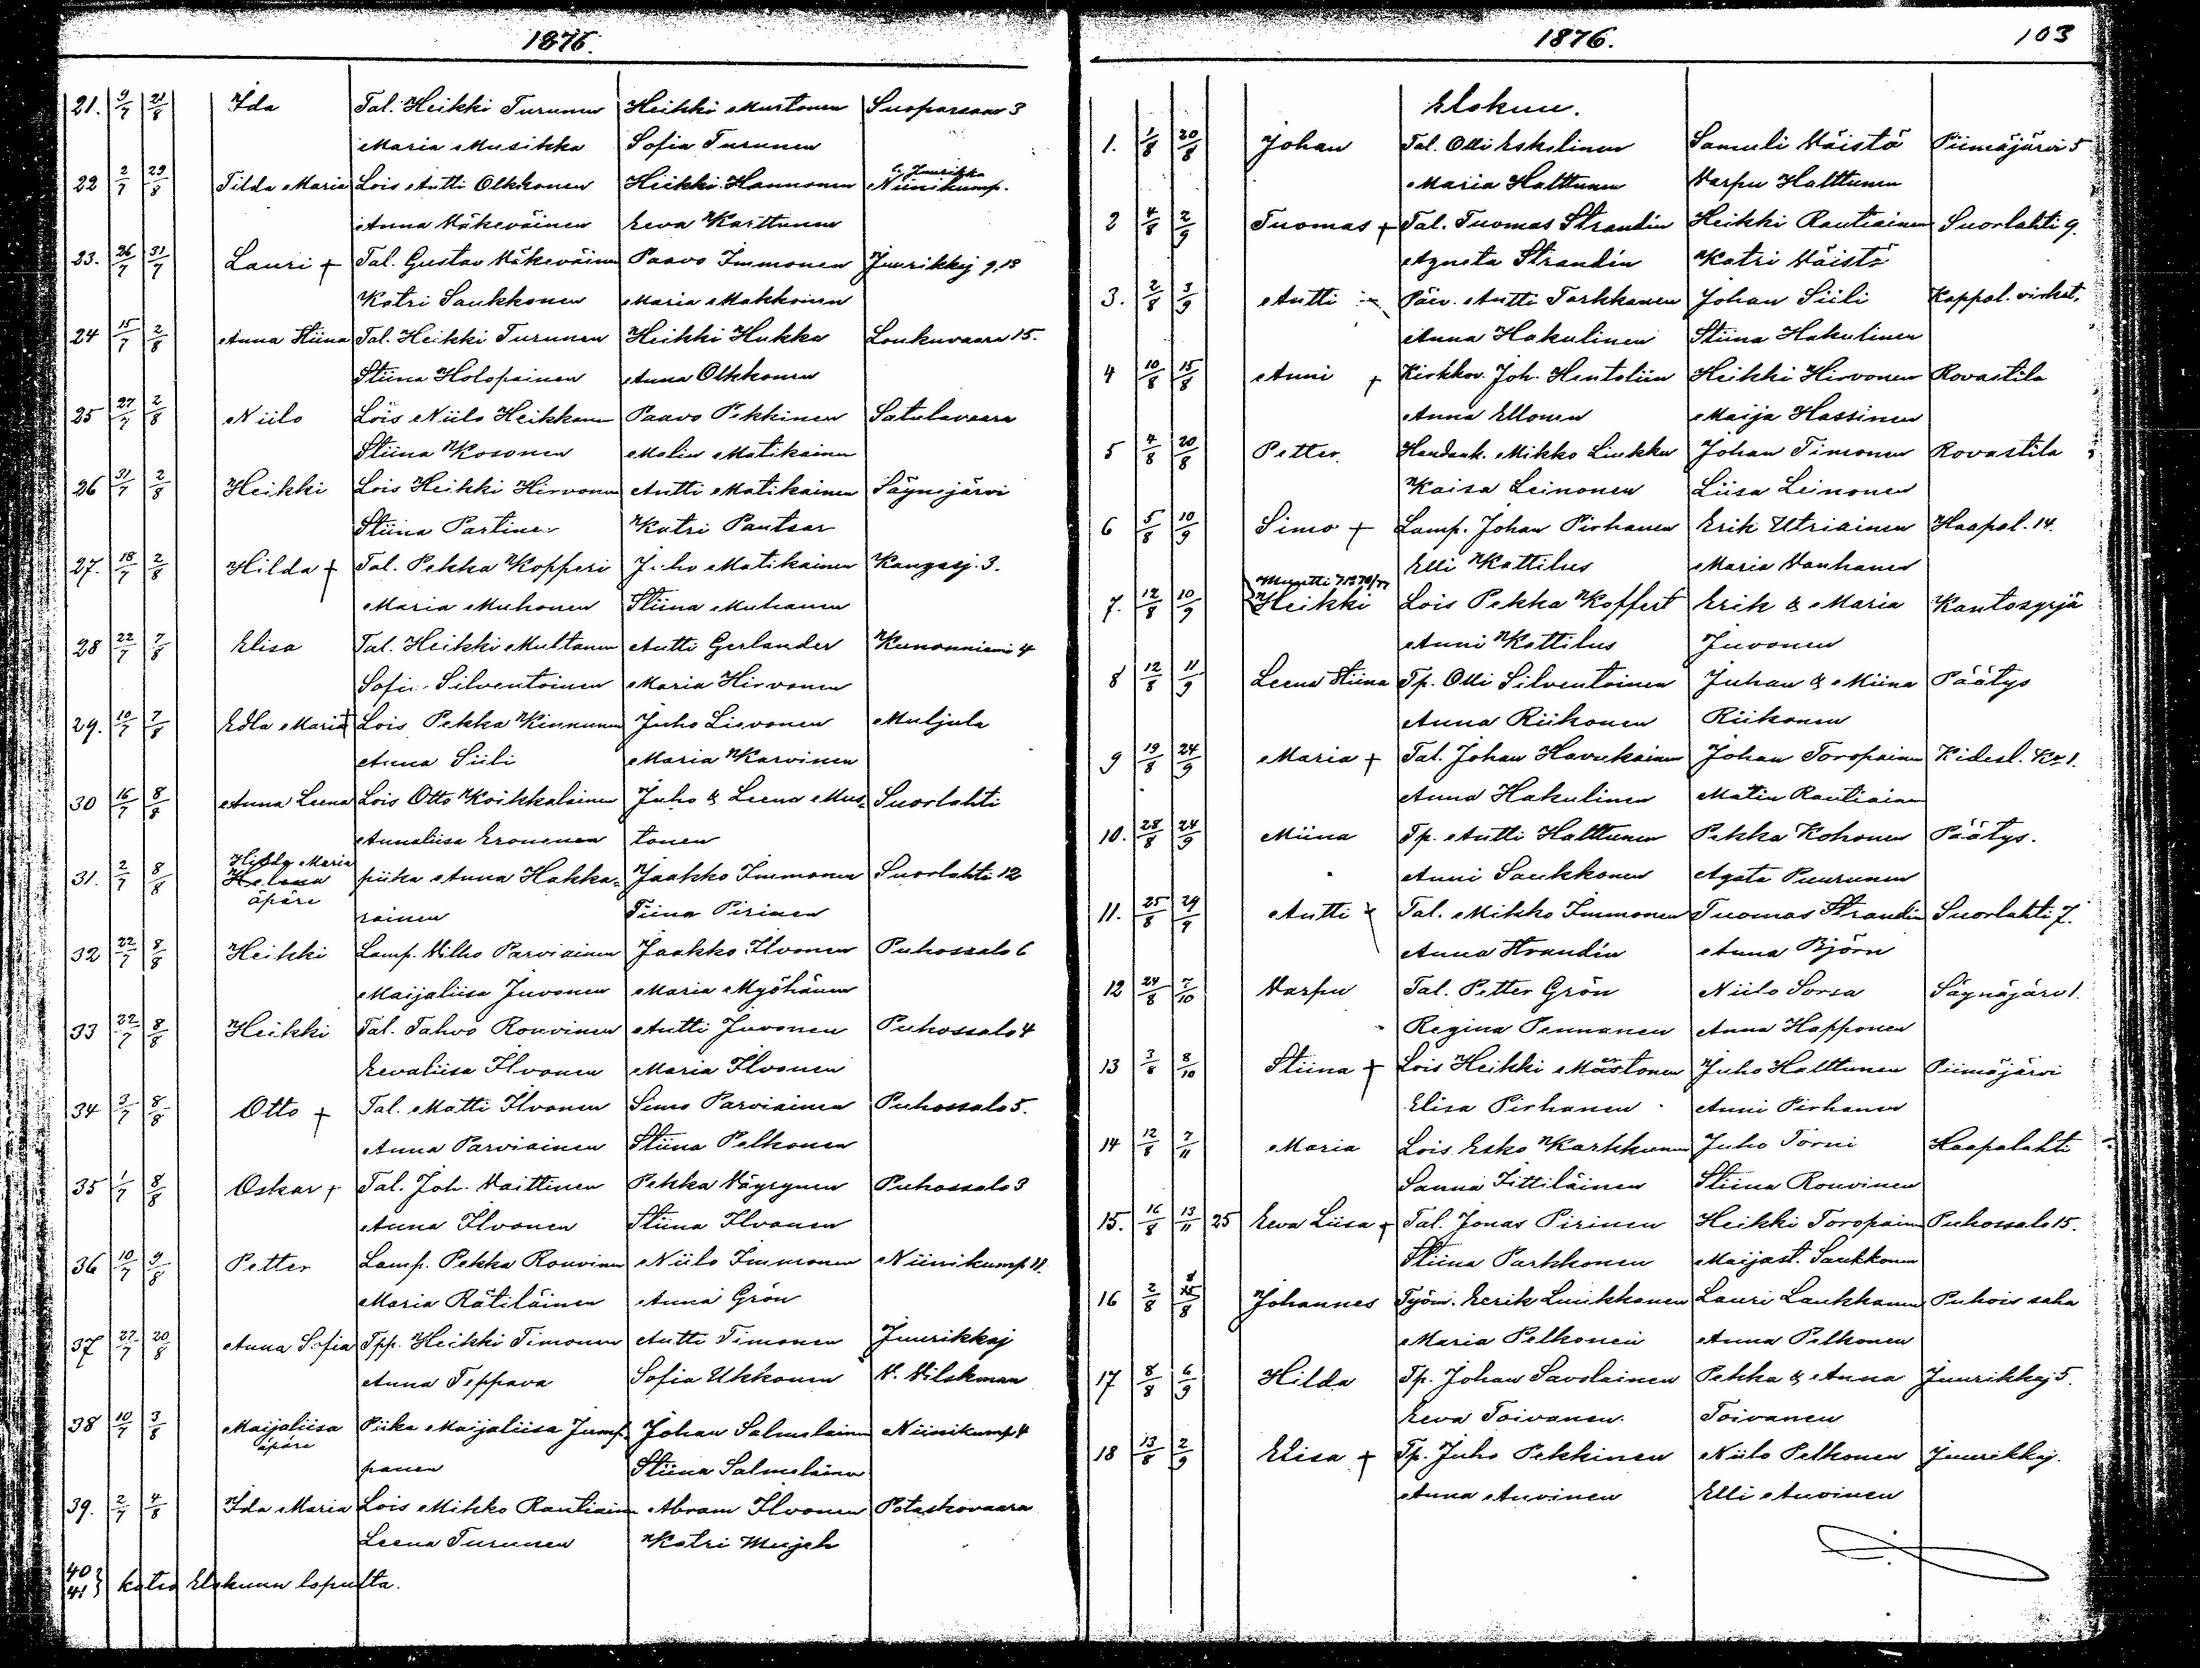 1876.
21. 9/7 21/8 Ida Tal. Heikki Turunen Heikki Murtonen Suoparsaar 3
Maria Musikka Sofia Turunen
22 2/7 29/8 Tilda Maria Lois Antti Olkkonen Heikki Hannonen Niinikump.
Anna Väkeväinen Eeva Karttunen
23. 26/7 31/7 Lauri + Tal. Gustav Väkeväinen Paavo Immonen Juurikkaj 9,18
Katri Saukkonen Maria Makkoinen
24 15/7 2/8 Anna Stiina Tal. Heikki Turunen Heikki Hukka Loukuvaara 15.
Stiina Holopainen Anna Olkkonen
25 27/7 2/8 Niilo Lois Niilo Heikkonen Paavo Pekkinen Satulavaara
Stiina Kosonen Malin Matikainen
26 31/7 2/8 Heikki Lois Heikki Hirvonen Antti Matikainen Säynejärvi
Stiina Partinen Katri Pantsar
27. 18/7 2/8 Hilda + Tal. Pekka Kopperi Juho Matikainen Kangasj. 3.
Maria Muhonen Stiina Muhonen
28 22/7 7/8 Elisa Tal. Heikki Multanen Antti Gerlander Kunonniemi 4
Sofia Silventoinen Maria Hirvonen
29. 10/7 7/8 Edla Maria + Lois Pekka Kinnunen Juho Lievonen Muljula
Anna Siili Maria Karvinen
30 16/7 8/8 Anna Leena Lois Otto Koikkalainen Juho & Leena Mus- Suorlahti
Annaliisa Eronenen tonen
31. 2/7 8/8 Hilda Maria
Helena piika Anna Hakka- Jaakko Immonen Suorlahti 12
äpäre
rainen Tiina Pirinen
32 22/7 8/8 Heikki Lamp. Vilho Parviainen Jaakko Ilvonen Puhossalo 6
Maijaliisa Juvonen Maria Myöhänen
33 22/7 8/8 Heikki Tal. Tahvo Rouvinen Antti Juvonen Puhossalo 4
Eevaliisa Ilvonen Maria Ilvonen
34 3/7 8/8 Otto + Tal. Matti Ilvonen Simo Parviainen Puhossalo 5.
Anna Parviainen Stiina Pelkonen
35 1/7 8/8 Oskar + Tal. Joh. Vaittinen Pekka Väyrynen Puhossalo 3
Anna Ilvonen Stiina Ilvonen
36 10/7 9/8 Petter Lamp. Pekka Rouvinen Niilo Immonen Niinikump 11.
Maria Rätiläinen Anna Grön
37 27/7 20/8 Anna Sofia Tpp. Heikki Timonen Antti Timonen Juurikkaj
Anna Teppava Sofia Ukkonen V. Vilskman
38 10/7 3/8 Maijaliisa Piika Maijaliisa Jump- Johan Salmelainen Niinikump 4
äpäre
panen Stiina Salmelainen
39. 2/7 4/8 Ida Maria Lois Mikko Rautiainen Abram Ilvonen Potaskavaara
Leena Turunen Katri Mujeh
40 }
41 } katso Elokuun lopulta.
1876. 103
Elokuu.
1. 1/8 20/8 Johan Tal. Olli Eskelinen Samuli Väistö Piimäjärvi 5
Maria Halttunen Varpu Halttunen
2 4/8 2/9 Tuomas + Tal. Tuomas Strandin Heikki Rautiainen Suorlahti 9.
Agneta Strandin Katri Väistö
3. 2/8 3/9 Antti Päiv. Antti Tarkkanen Johan Siili Kappal. virkat.
Anna Hakulinen Stiina Hakulinen
4 10/8 15/8 Anni + Kirkkov. Joh. Hentoliin Heikki Hirvonen Rovastila
Anna Ellonen Maija Hassinen
5 4/8 20/8 Petter Mikko Liukku Johan Timonen Rovastila
Kaisa Leinonen Liisa Leinonen
6 5/8 10/9 Simo + Lamp. Johan Pirhonen Erik Utriainen Haapal. 14.
Elli Kattilus Maria Vanhanen
7. 12/8 10/9 Heikki Lois Pekka Koffert Erik & Maria Kantosyrjä
Anni Kattilus Juvonen
8 12/8 11/9 Leena Stiina Tp. Olli Silventoinen Juhan & Miina Päätys
Anna Riikonen Riikonen
9 19/8 24/9 Maria + Tal. Johan Havukainen Johan Toropainen Kidesl. Kr 1.
Anna Hakulinen Matin Rautiainen
10. 28/8 24/9 Miina Tp. Antti Halttunen Pekka Kohonen Päätys.
Anni Saukkonen Agata Puurunen
11. 25/8 29/9 Antti + Tal. Mikko Immonen Tuomas Strandin Suorlahti 7.
Anna Strandin Anna Björn
12 24/8 7/10 Varpu Tal. Petter Grön Niilo Sorsa Säynäjärv 1.
Regina Pennanen Anna Happonen
13 3/8 8/10 Stiina + Lois Heikki Mustonen Juho Halttunen Piimäjärvi
Elisa Pirhonen Anni Pirhonen
14 12/8 7/11 Maria Lois. Esko Karhkunen Juho Törni Haapalahti
Sanna Iittiläinen Stiina Rouvinen
15. 16/8 13/11 25 Eeva Liisa + Tal. Jonas Pirinen Heikki Toropainen Puhossalo 15.
Stiina Parkkonen Maijast. Saukkonen
16 2/8 Johannes Työm. Eerik Luukkanen Lauri Laukkanen Puhois saha
Maria Pelkonen Anna Pelkonen
17 8/8 6/9 Hilda Tp. Johan Savolainen Pekka & Anna Juurikkaj 5.
Eeva Toivanen Toivanen
18 13/8 2/9 Elisa + Tp. Juho Pekkinen Niilo Pelkonen Juurikkaj.
Anna Auvinen Elli Auvinen